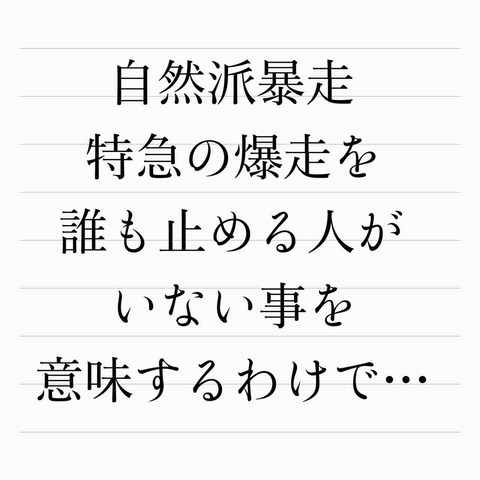 自然派暴走
特急の爆走を
誰も止める人が
いない事を
意味するわけで…